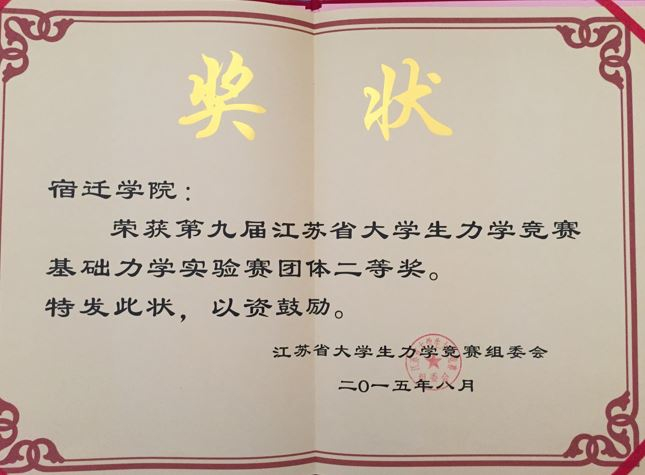 奖状
宿迁学院：
荣获第九届江苏省大学生力学竞赛
基础力学实验赛团体二等奖。
特发此状，以资鼓励。
江苏省大学生力学竞赛组委会
二〇一五年八月